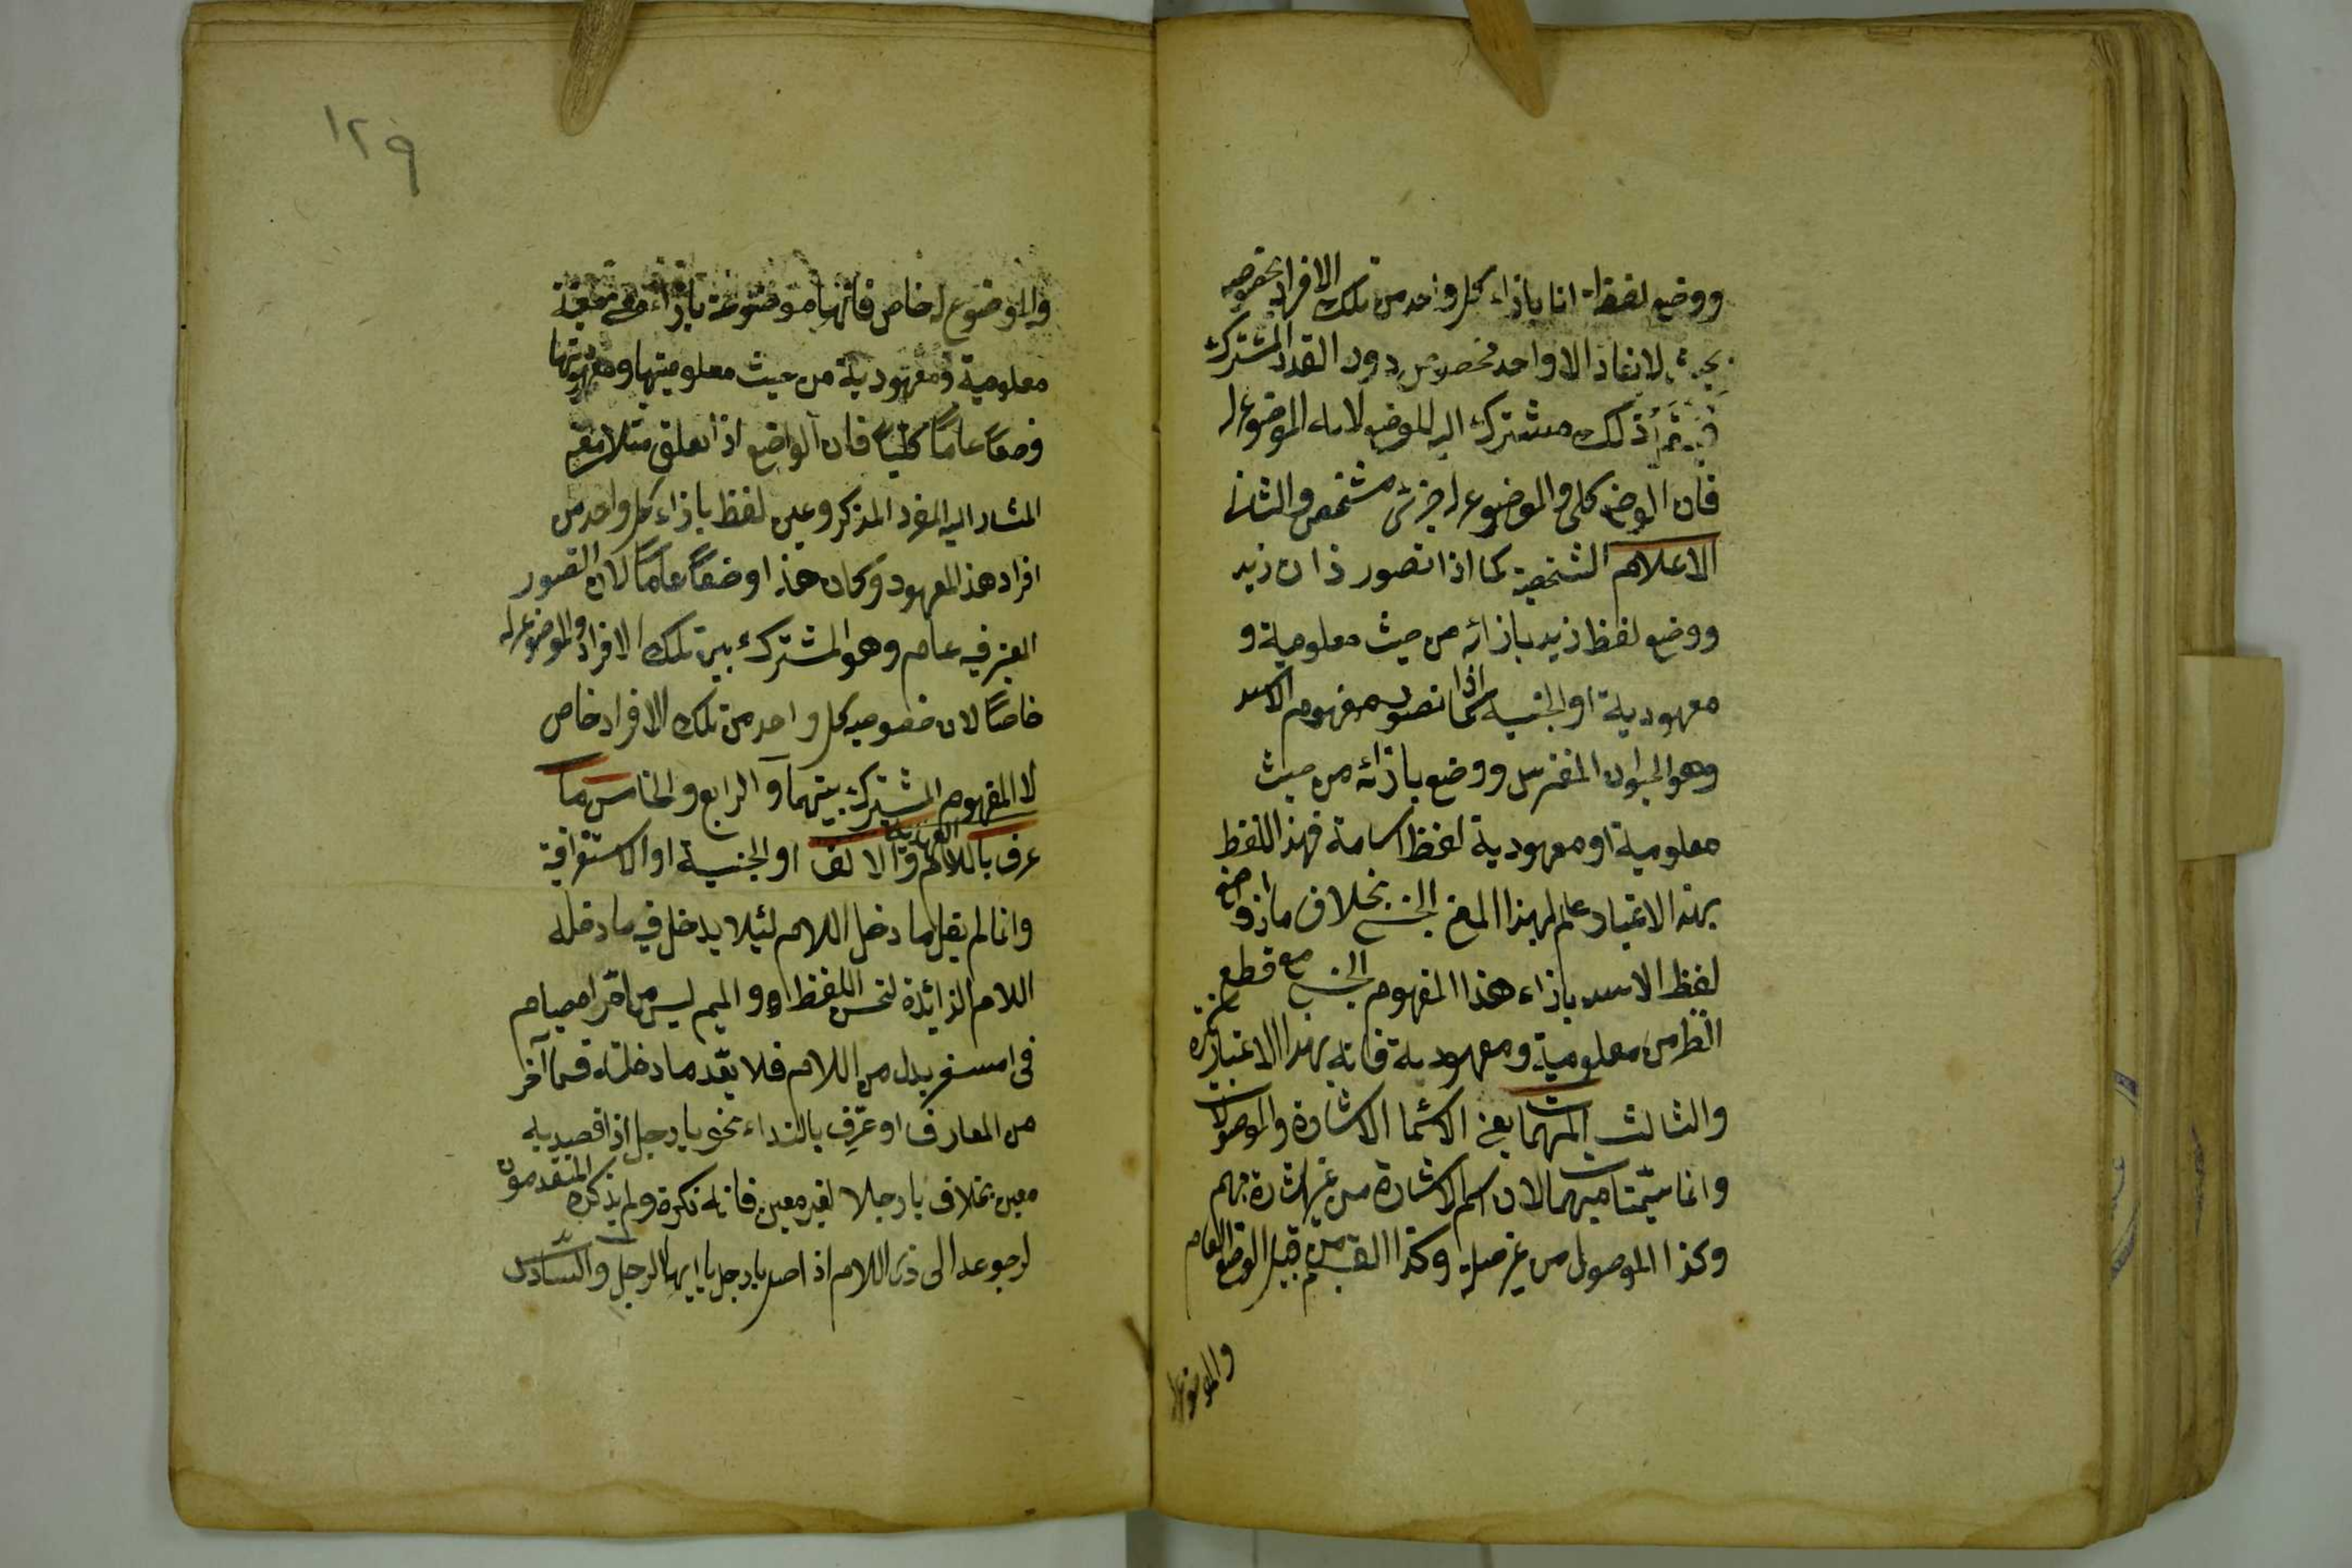 ووضع لفظ انا بازاء كل واحد من تلك الافراد بخصوصه
بحيث لا يفاد الا واحد مخصوص دون القدر المشترك
ذلك مشترك الموضوع له
فان الوضع كلى والموضوع له جزئى مشخص والثانى
الاعلام الشخصية كما اذا تصور ذات زيد
ووضع لفظ زيد بازائه من حيث معلومية و
معهودية او الجنسية كما اذا تصور مفهوم الاسد
وهو الحيوان المفترس ووضع بازائه من حيث
معلومية او معهودية لفظ اسامة فهذا اللفظ
بهذه الاعتبار علم لهذا المعنى الجنسى بخلاف ما اذا وضع
لفظ الاسد بازاء هذا المفهوم الجنسى مع قطع
النظر من معلومية ومعهودية فانه بهذا الاعتبار نكرة
والثالث المبهمات يعنى الاسماء الاشارة والموصولات
وانما سميتا مبهما لان اسم الاشارة من غير اشارة مبهم
وكذا الموصول من غير صلة وكذا القسم من قبيل الوضع العام
والموضوع له
١٢٩
والموضوع له خاص فانها موضوعة بازاء معينة
معلومية ومعهودية من حيث معلوميتها ومعهوديتها
وضعاً عاماً كلياً فان الواضع اذا تعلق مثلا معنى
المشار اليه المفرد المذكر وعين لفظ بازاء كل واحد من
افراد هذ المعهود وكان هذا وضعاً عاماً لان التصور
المعتبر فيه عام وهو المشترك بين تلك الافراد والموضوع له
خاصاً لان خصوصيه كل واحد من تلك الافراد خاص
لا المفهوم المشترك بينهما و الرابع والخامس ما
عرف باللام والالف العهدية او الجنسية او الاستغراقية
وانما لم يقل ما دخل اللام لئلا يدخل فيه ما دخله
اللام الزائدة لتحسن اللفظ او والميم ليس من امبر امصيام
فى امسفر بدل من اللام فلا يعد ما دخلته قسما آخر
من المعارف او عرّف بالنداء نحو يا رجل اذا قصد به
معين بخلاف يا رجلا لغير معين فانه نكرة ولم يذكره المتقدمون
لرجوعه الى ذى اللام اذ اصل يا رجل يا ايها الرجل والسّادس